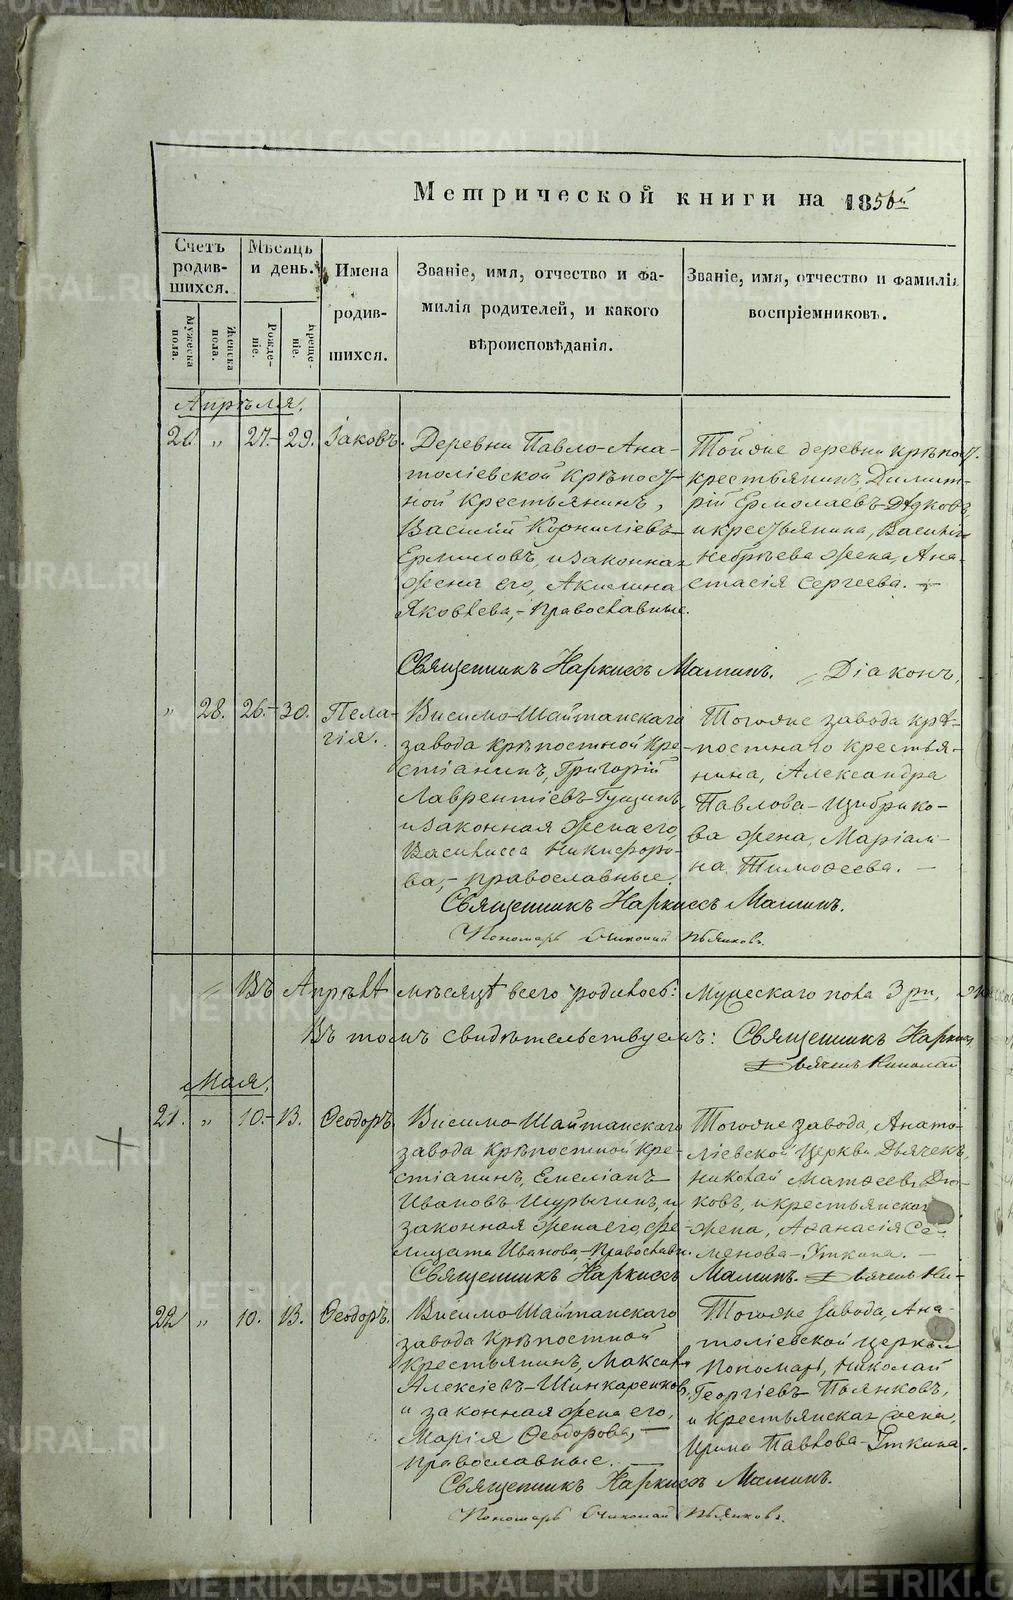 Метрической книги на 1856й
Счетъ родив-шихся.
Мужеска пола.
Женска пола.
Мѣсяцъ и день.
Рожде-ніе.
Креще-ніе.
Имена родив-шихся.
Званіе, имя, отчество и фа-
милія родителей, и какого
вѣроисповѣданія.
Званіе, имя, отчество и фамилія
воспріемниковъ.
Апрѣля,
20. „ 27.-29. Іаковъ.
Деревни Павло-Ана-
толіевской крѣпост-
ной крестьянинъ,
Василій Корниліевъ
Ермиловъ, и законная
жена его, Акилина
Яковлева,- православные.
Тойже деревни крѣпост.
крестьянинъ, Димит-
рій Ермолаевъ
и крестьянина, Василія
жена, Ана-
стасія Сергеева.
Священникъ Наркиссъ Маминъ. Діаконъ,
„ 28. 26.-30. Пела-
гія.
Висимо-Шайтанскаго
завода крѣпостной кре-
стіанинъ, Григорій
Лаврентіевъ Гущинъ,
и законная жена его,
Василисса Никифоро-
ва,- православные.
Тогоже завода крѣ-
постнаго крестья-
нина, Александра
Павлова-Цибрико-
ва жена, Маріам-
на Тимоѳеева.
Священникъ Наркиссъ Маминъ.
Пономарь Николай Пьянковъ.
Въ Апрѣлѣ мѣсяцѣ всего родилось: Мужескаго пола 3
Въ томъ свидѣтельствуемъ: Священникъ Нарки
Дьячекъ Николай
Мая,
21. „ 10.-13. Ѳеодоръ.
Висимо-Шайтанскаго
завода крѣпостной кре-
стіанинъ, Емеліанъ
Ивановъ Шурыгинъ, и
законная жена его, Фе-
лицата Иванова,- Православн.
Тогоже завода, Анато-
ліевской церкви Дьячекъ,
Николай Матѳеевъ
ковъ, и крестьянская
жена, Аѳанасія Се-
менова-Уткина.
Священникъ Наркиссъ Маминъ. Дьячекъ Ни-
22 „ 10. 13. Ѳеодоръ.
Висимо-Шайтанскаго
завода крѣпостной
крестьянинъ, Максимъ
Алексіевъ-Шинкаренковъ,
и законная жена его,
Марія Ѳеодорова,
православные.
Тогоже завода, Ана-
толіевской церкви
Пономарь, Николай
Георгіевъ Пьянковъ,
и крестьянская жена,
Ирина Павлова-Уткина.
Священникъ Наркиссъ Маминъ.
Пономарь Николай Пьянковъ.
METRIKI.GASO-URAL.RU